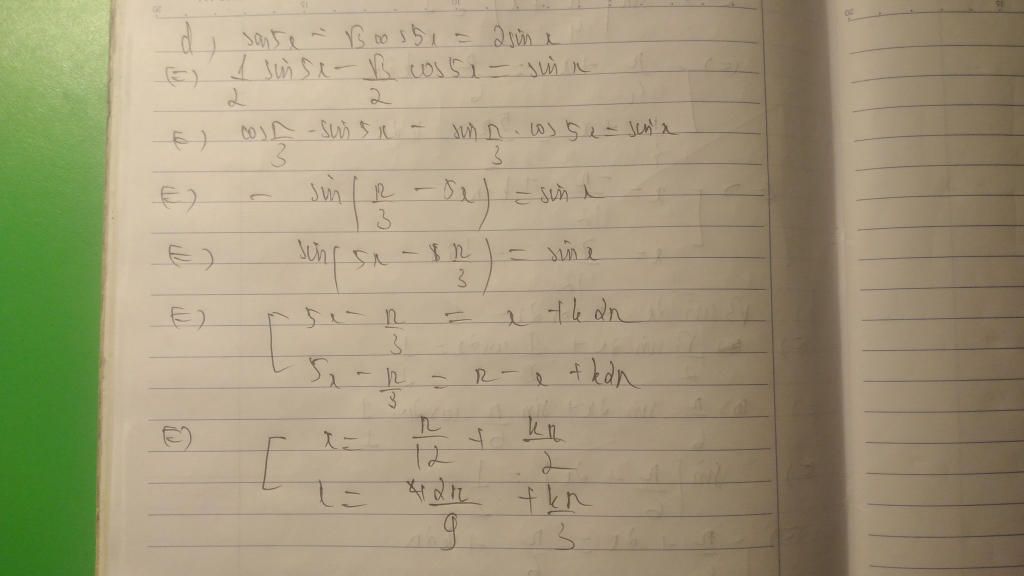 d, sin5x - √3 cos5x = 2sin x
⇔ 1/2 sin 5x - √3/2 cos5x = sin x
⇔ cos π/3 · sin 5x - sin π/3 · cos 5x = sin x
⇔ - sin(π/3 - 5x) = sin x
⇔ sin(5x - π/3) = sin x
⇔ [ 5x - π/3 = x + k2π
5x - π/3 = π - x + k2π
⇔ [ x = π/12 + kπ/2
x = 2π/9 + kπ/3